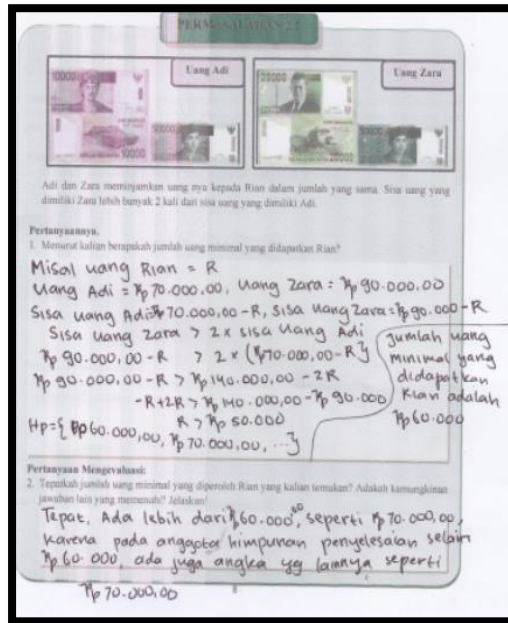 PERMASALAHAN 2.2
Uang Adi
Uang Zara
10000
10000
20000
Adi dan Zara meminjamkan uang nya kepada Rian dalam jumlah yang sama. Sisa uang yang
dimiliki Zara lebih banyak 2 kali dari sisa uang yang dimiliki Adi.
Pertanyaannya.
1. Menurut kalian berapakah jumlah uang minimal yang didapatkan Rian?
Misal uang Rian = R
Uang Adi = Rp 70.000,00, Uang Zara = Rp 90.000,00
Sisa Uang Adi = Rp 70.000,00 - R, Sisa Uang Zara = Rp 90.000 - R
Sisa uang Zara > 2x sisa Uang Adi
Rp 90.000,00 - R > 2 x (Rp 70.000,00 - R)
Rp 90.000,00 - R > Rp 140.000,00 - 2R
-R+2R > Rp 140.000,00 - Rp 90.000
R > Rp 50.000
Hp = { Rp 60.000,00, Rp 70.000,00, ...}
Jumlah uang
minimal yang
didapatkan
Rian adalah
Rp 60.000
Pertanyaan Mengevaluasi:
2. Tepatkah jumlah uang minimal yang diperoleh Rian yang kalian temukan? Adakah kemungkinan
jawaban lain yang memenuhi? Jelaskan!
Tepat, Ada lebih dari Rp 60.000,00, seperti Rp 70.000,00,
karena pada anggota himpunan penyelesaian selain
Rp 60.000, ada juga angka yg lainnya seperti
Rp 70.000,00
8